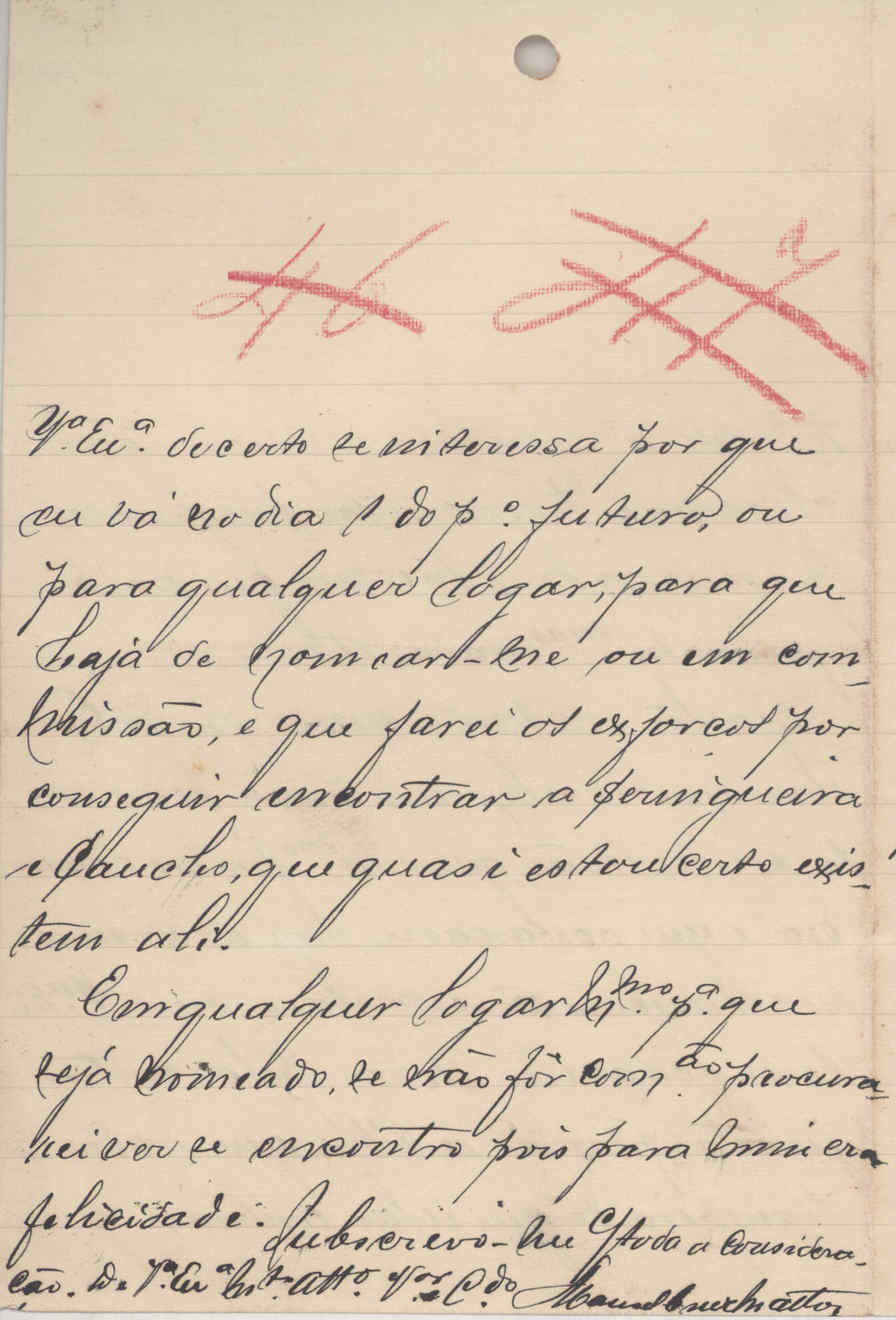 Vª. Exª. decerto se interessa por que
eu vá no dia 1 do pº. futuro, ou
para qualquer logar, para que
haja de nomear-me ou em com-
missão, e que farei os exforços por
conseguir encontrar a Seringueira
e Caucho, que quasi estou certo exis-
tem ali.
Em qualquer logar mmo. pª. que
sejá nomeado, se não fôr comão. procura-
rei ver se encontro pois para mim era
felicidade. Subscrevo-me c/ toda a considera-
ção. De Vª. Exª mto. Atto. Vor. e C.do
Manuel Mattos